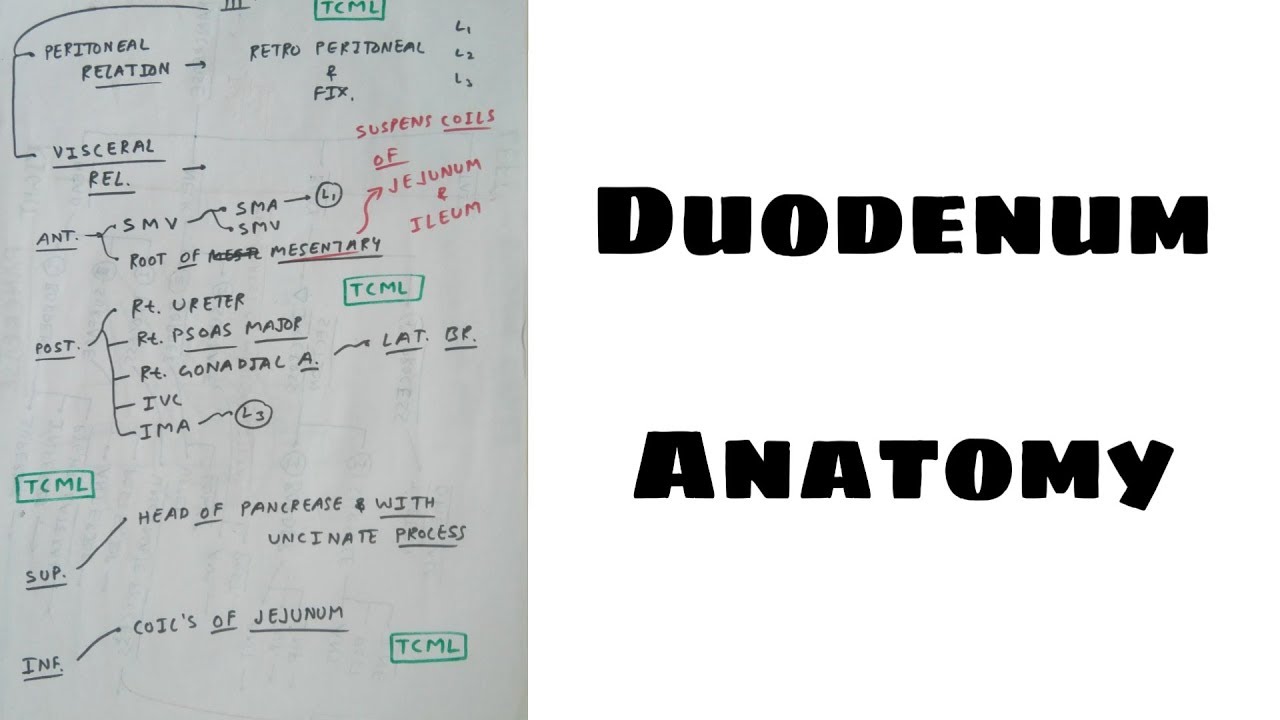 III
TCML
PERITONEAL
RELATION →
RETRO PERITONEAL
&
FIX.
L1
L2
L3
VISCERAL
REL. →
SUSPENS COILS
OF
JEJUNUM
&
ILEUM
ANT.
SMV
SMA
L1
SMV
ROOT OF MESENTARY
TCML
POST.
Rt. URETER
Rt. PSOAS MAJOR
Rt. GONADIAL A.
LAT. BR.
IVC
IMA
L3
TCML
SUP.
HEAD OF PANCREASE & WITH
UNCINATE PROCESS
INF.
COIL'S OF JEJUNUM
TCML
DUODENUM
ANATOMY